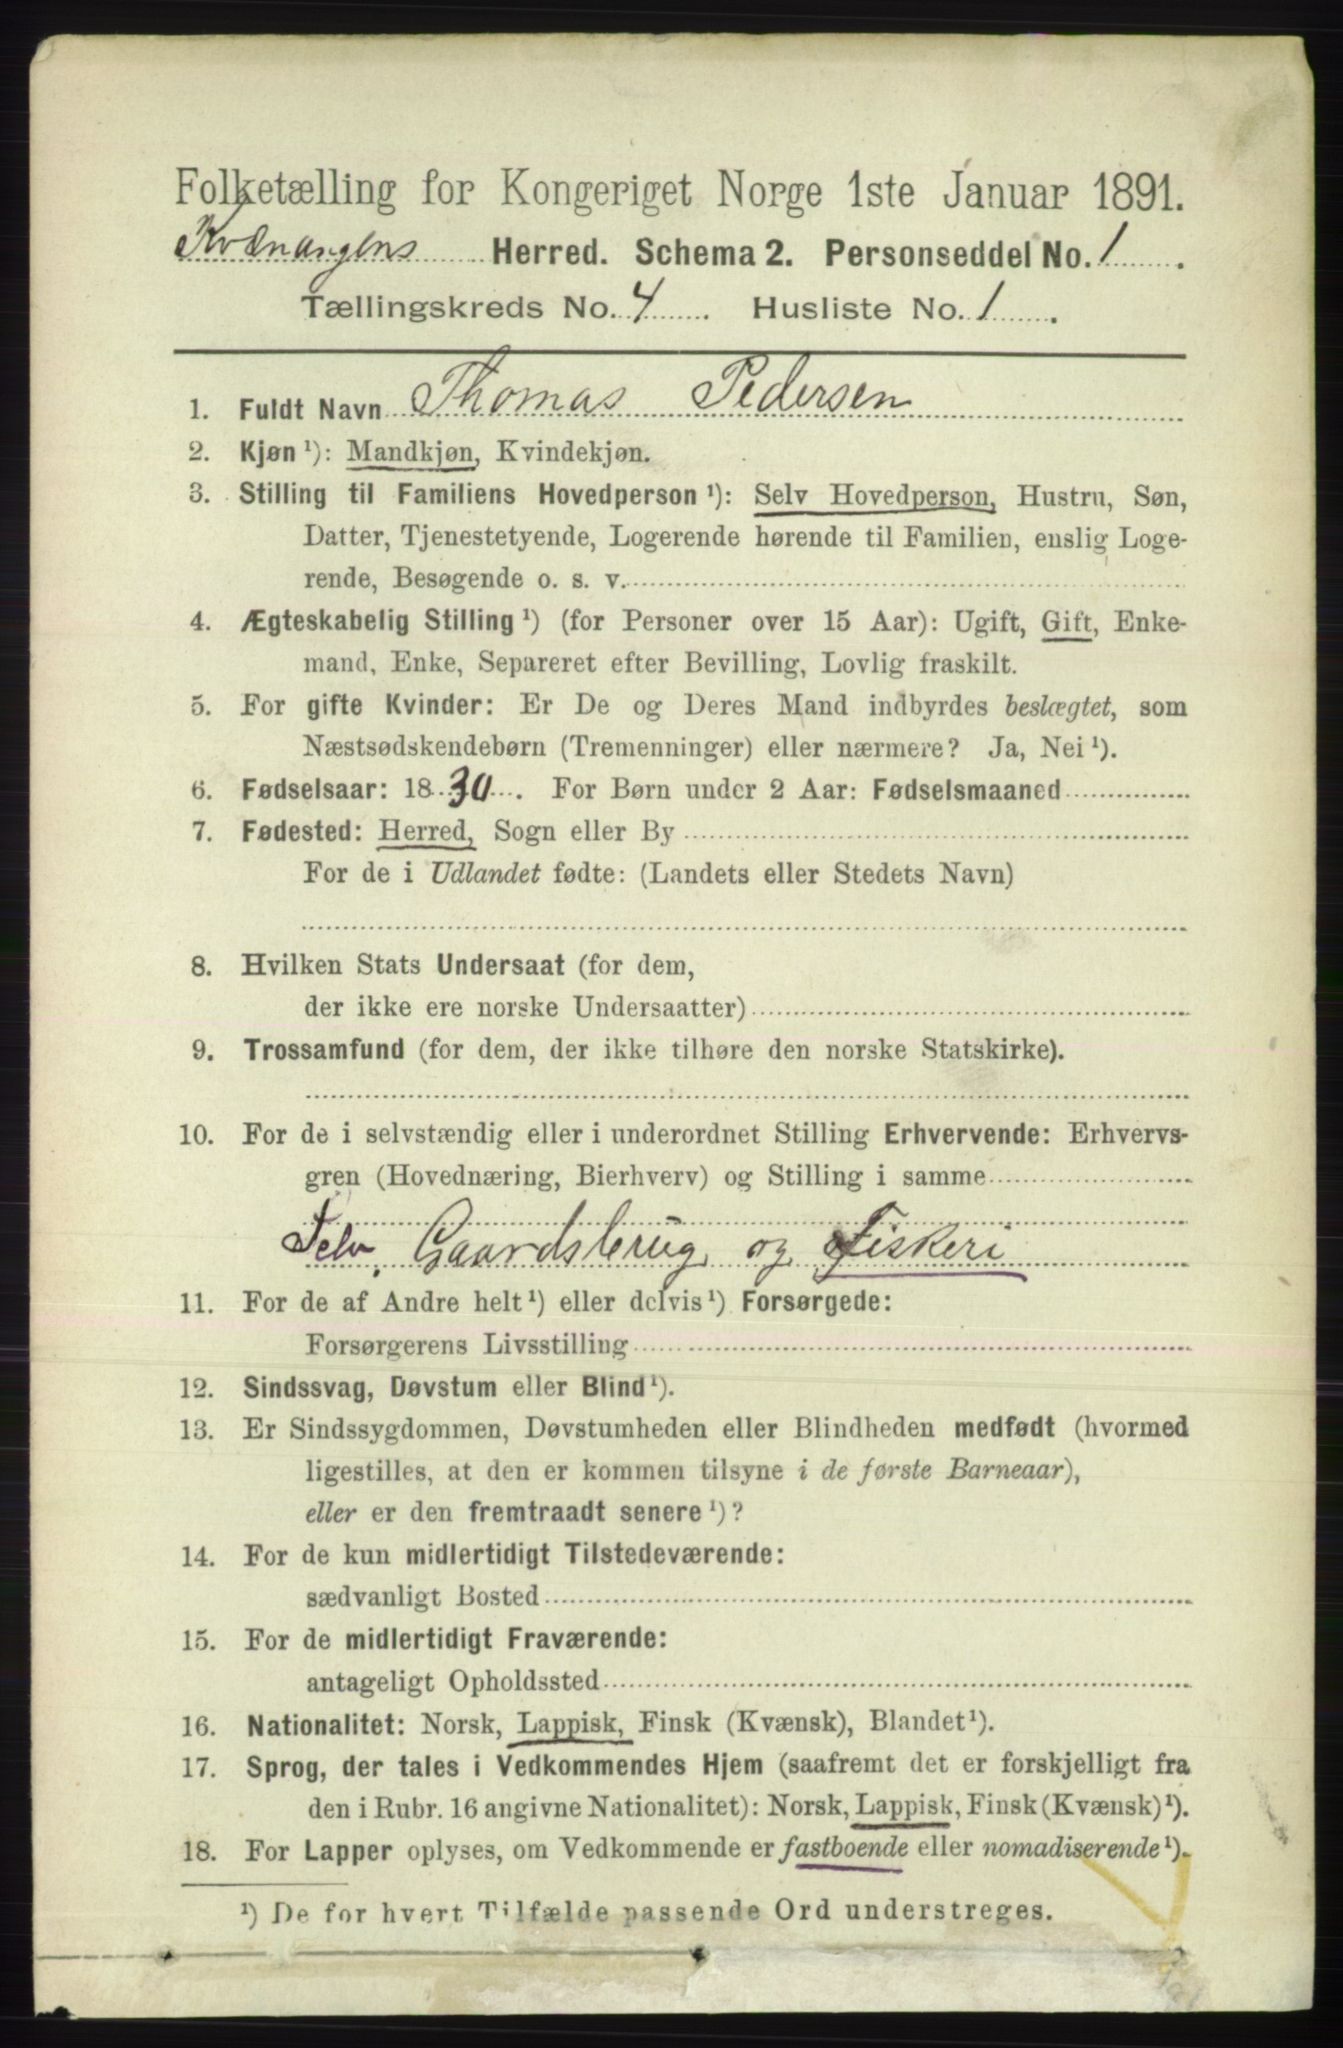 Folketælling for Kongeriget Norge 1ste Januar 1891.
Kvænangens Herred. Schema 2. Personseddel No. 1.
Tællingskreds No. 4. Husliste No. 1.
1. Fuldt Navn Thomas Pedersen
2. Kjøn¹): Mandkjøn, Kvindekjøn.
3. Stilling til Familiens Hovedperson¹): Selv Hovedperson, Hustru, Søn,
Datter, Tjenestetyende, Logerende hørende til Familien, enslig Loge-
rende, Besøgende o. s. v.
4. Ægteskabelig Stilling¹) (for Personer over 15 Aar): Ugift, Gift, Enke-
mand, Enke, Separeret efter Bevilling, Lovlig fraskilt.
5. For gifte Kvinder: Er De og Deres Mand indbyrdes beslægtet, som
Næstsødskendebørn (Tremenninger) eller nærmere? Ja, Nei¹).
6. Fødselsaar: 1830. For Børn under 2 Aar: Fødselsmaaned
7. Fødested: Herred, Sogn eller By
For de i Udlandet fødte: (Landets eller Stedets Navn)
8. Hvilken Stats Undersaat (for dem,
der ikke ere norske Undersaatter)
9. Trossamfund (for dem, der ikke tilhøre den norske Statskirke).
10. For de i selvstændig eller i underordnet Stilling Erhvervende: Erhvervs-
gren (Hovednæring, Bierhverv) og Stilling i samme
Selv, Gaardsbrug og Fiskeri
11. For de af Andre helt¹) eller delvis¹) Forsørgede:
Forsørgerens Livsstilling
12. Sindssvag, Døvstum eller Blind¹).
13. Er Sindssygdommen, Døvstumheden eller Blindheden medfødt (hvormed
ligestilles, at den er kommen tilsyne i de første Barneaar),
eller er den fremtraadt senere¹)?
14. For de kun midlertidigt Tilstedeværende:
sædvanligt Bosted
15. For de midlertidigt Fraværende:
antageligt Opholdssted
16. Nationalitet: Norsk, Lappisk, Finsk (Kvænsk), Blandet¹).
17. Sprog, der tales i Vedkommendes Hjem (saafremt det er forskjelligt fra
den i Rubr. 16 angivne Nationalitet): Norsk, Lappisk, Finsk (Kvænsk)¹).
18. For Lapper oplyses, om Vedkommende er fastboende eller nomadiserende¹).
¹) De for hvert Tilfælde passende Ord understreges.